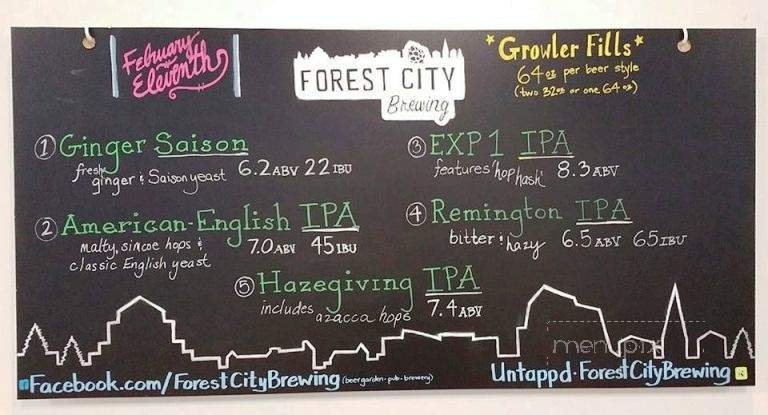 February
Eleventh
FOREST CITY
Brewing
*Growler Fills*
64oz per beer style
(two 32oz or one 64oz)
① Ginger Saison
fresh ginger & Saison yeast
6.2 ABV 22 IBU
② American-English IPA
malty, simcoe hops &
classic English yeast
7.0 ABV 45 IBU
③ EXP 1 IPA
features 'hop hash' 8.3 ABV
④ Remington IPA
bitter & hazy 6.5 ABV 65 IBU
⑤ Hazegiving IPA
includes azacca hops 7.4 ABV
menupix
Facebook.com/ForestCityBrewing (beergarden-pub-brewery)
Untappd·ForestCityBrewing